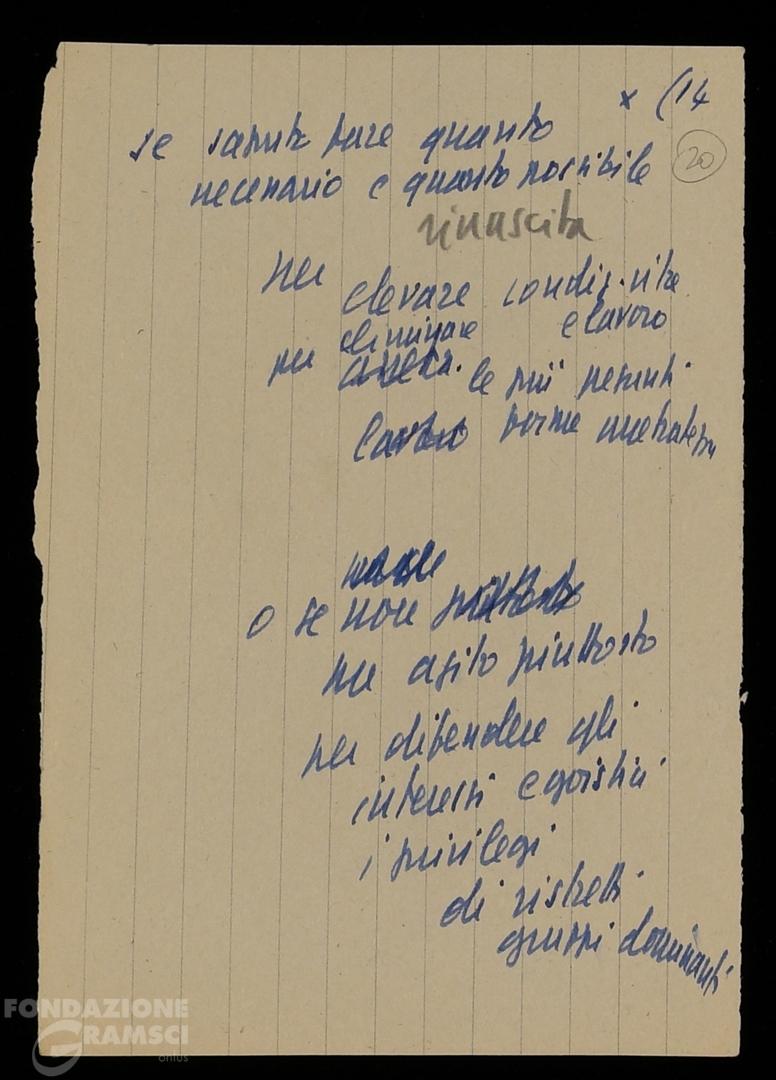 x (14
20
se saputo fare quanto
necessario e quanto possibile
rinascita
per elevare condiz. vita
e lavoro
per eliminare
le più pesanti
forme
o se non
per difendere gli
agito piuttosto
interessi egoistici
i privilegi
di ristretti
gruppi dominanti
FONDAZIONE
GRAMSCI
onlus